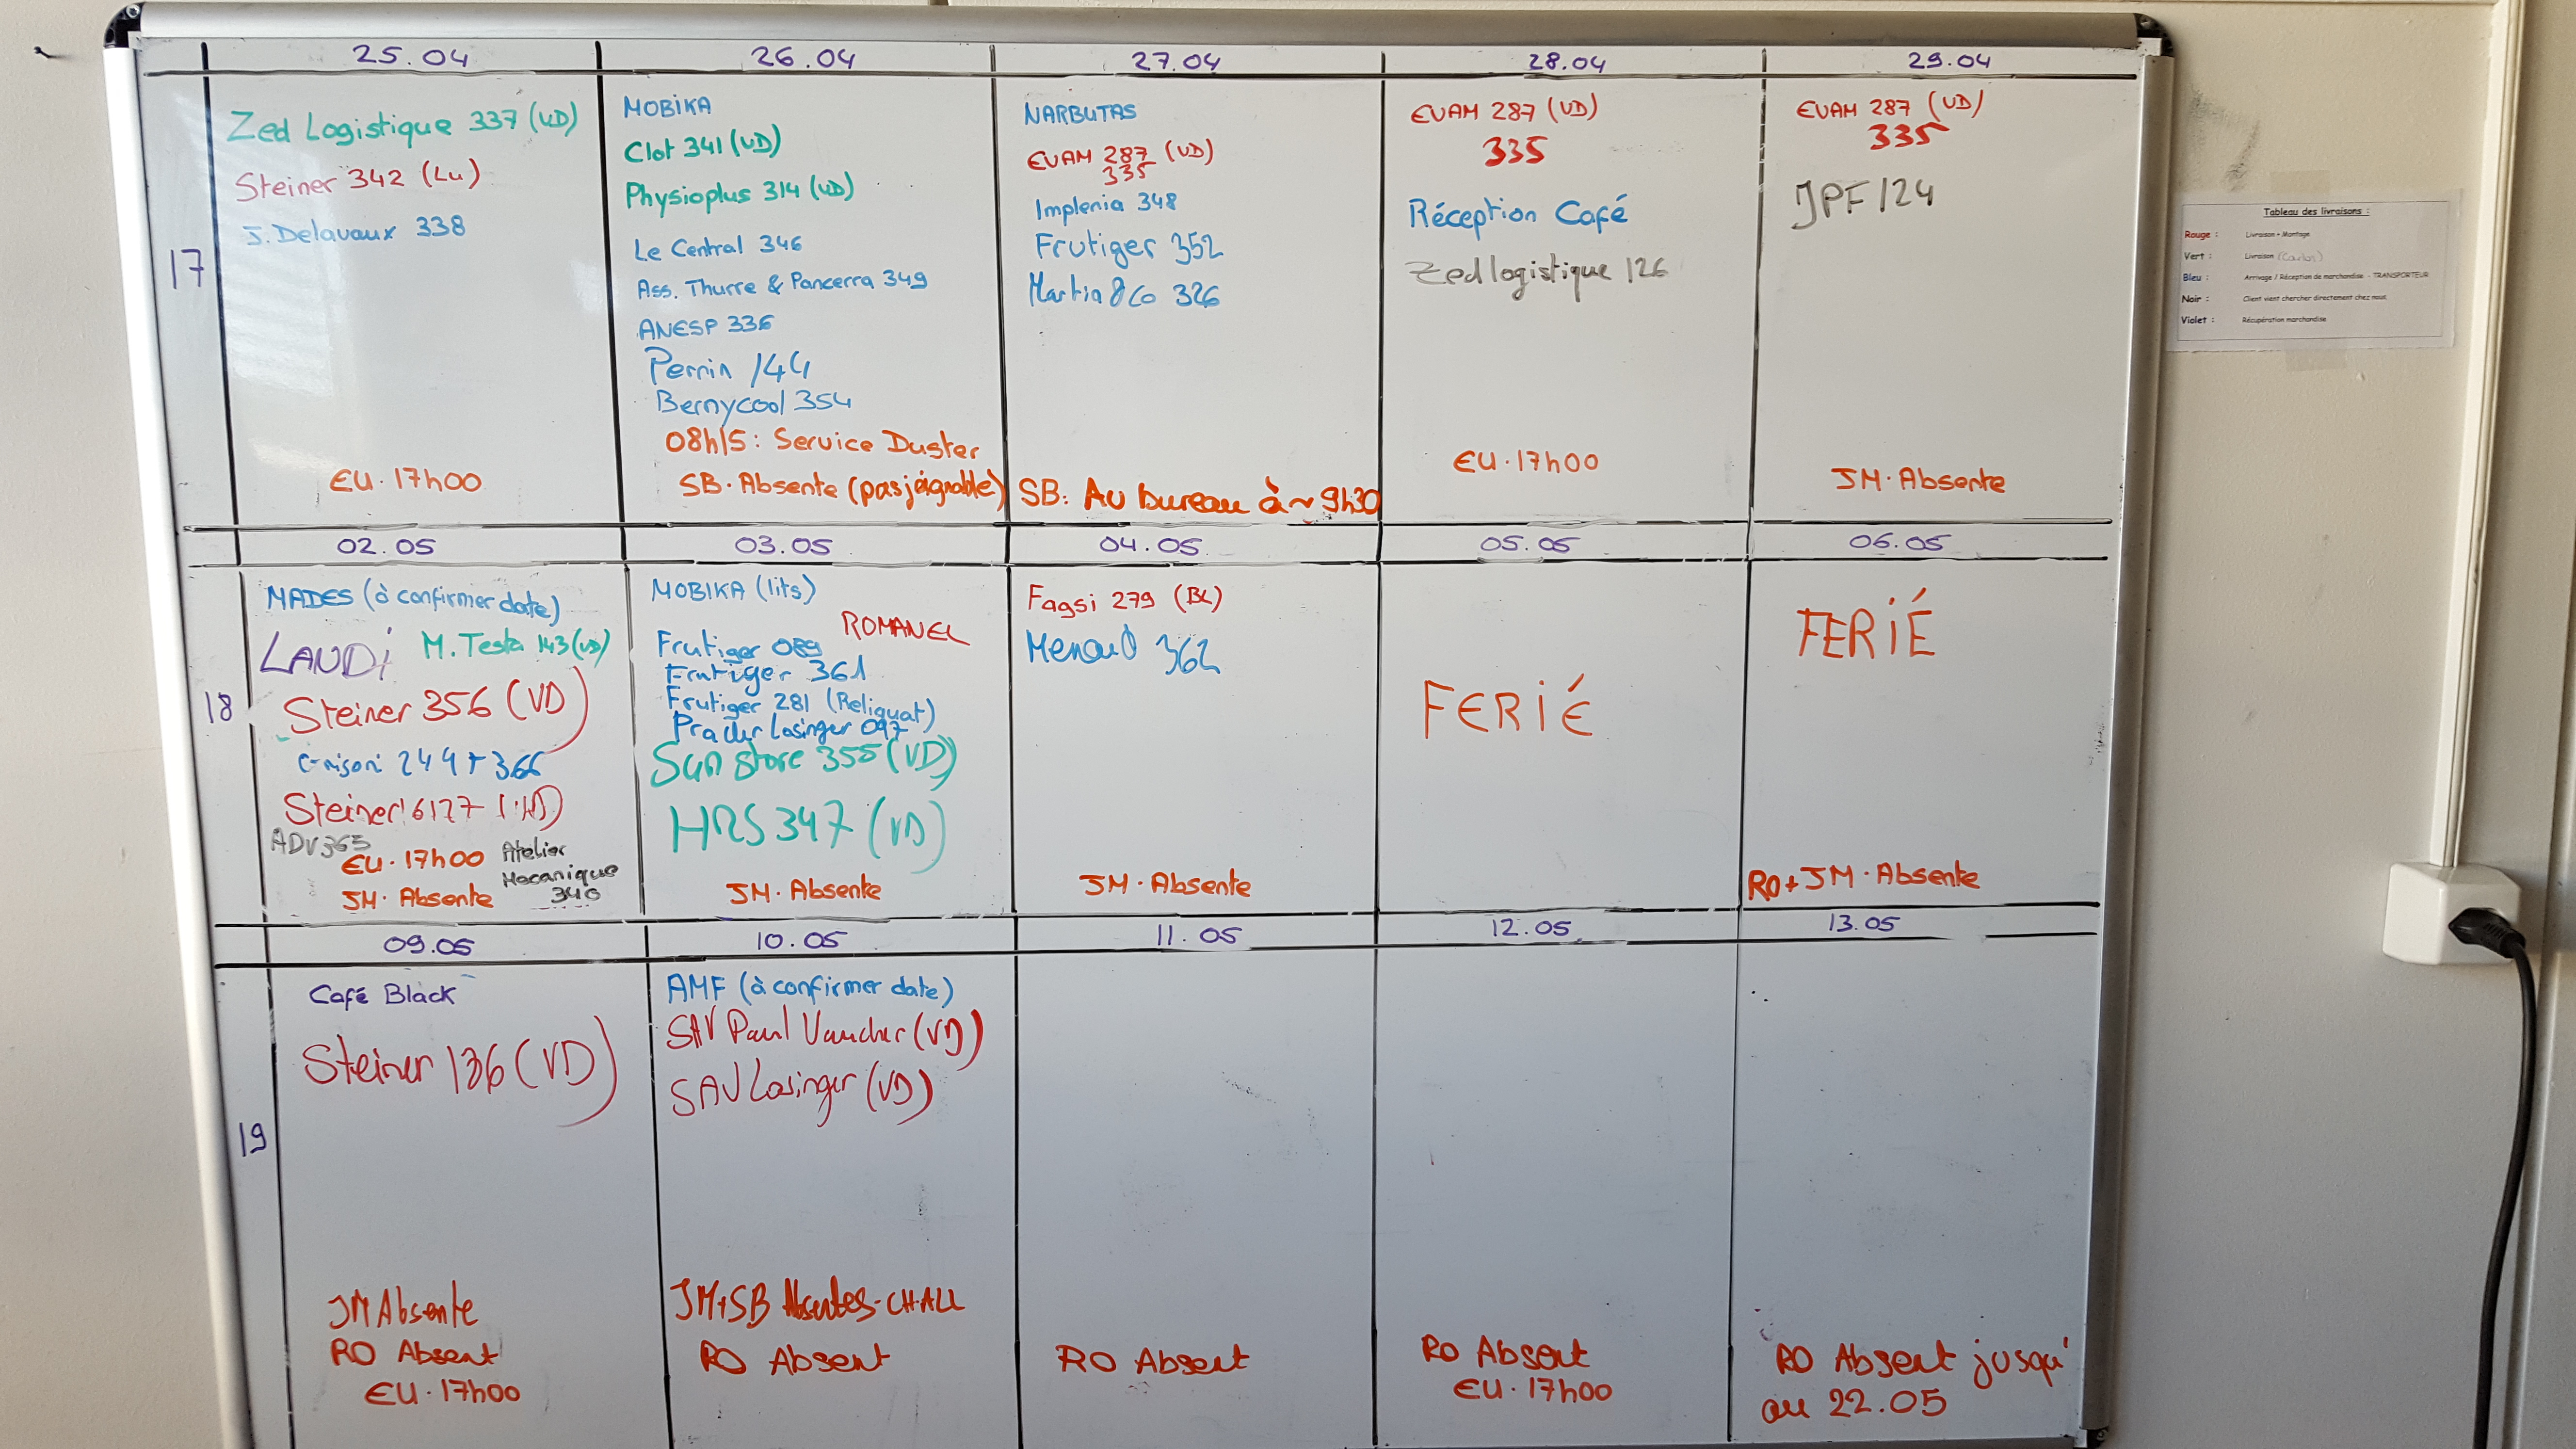 25.04
26.04
27.04
28.04
29.04
17
Zed Logistique 337 (VD)
Steiner 342 (Lu)
J. Delavaux 338
EU · 17h00
MOBIKA
Clot 341 (VD)
Physioplus 314 (VD)
Le Central 346
Ass. Thurre & Pancerra 349
ANESP 336
Perrin 144
Bernycool 354
08h15 : Service Duster
SB · Absente (pas joignable)
NARBUTAS
EVAM 287 (VD)
335
Implenia 348
Frutiger 352
Martin & Co 326
SB: Au bureau à ~ 9h30
EVAM 287 (VD)
335
Réception Café
Zed logistique 126
EU · 17h00
EVAM 287 (VD)
335
JPF 124
JM · Absente
02.05
03.05
04.05
05.05
06.05
18
MADES (à confirmer date)
LANDi
M. Testa 143 (VD)
Steiner 356 (VD)
244 + 366
Steiner
ADV 365
EU · 17h00
Atelier
Mecanique
340
JM · Absente
MOBIKA (lits)
ROMANEL
Frutiger 089
Frutiger 361
Frutiger 281 (Reliquat)
Losinger 097
Sun Store 355 (VD)
HRS 347 (VD)
JM · Absente
Fagsi 279 (BL)
362
JM · Absente
FERiÉ
FERiÉ
RO + JM · Absente
09.05
10.05
11.05
12.05
13.05
19
Café Black
Steiner 136 (VD)
JM Absente
RO Absent
EU · 17h00
AMF (à confirmer date)
SAV Paul Vaucher (VD)
SAV Losinger (VD)
JM+SB Absentes - CHALL
RO Absent
RO Absent
RO Absent
EU · 17h00
RO Absent jusqu'
au 22.05
Tableau des livraisons :
Rouge : Livraison + Montage
Vert : Livraison (Carlos)
Bleu : Arrivage / Réception de marchandise - TRANSPORTEUR
Noir : Client vient chercher directement chez nous
Violet : Récupération marchandise